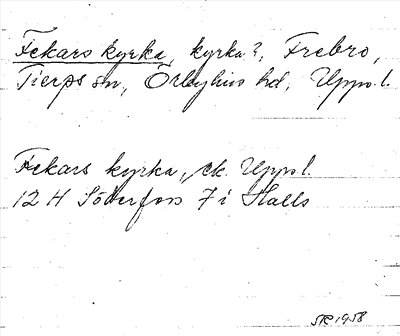 Fekars kyrka, kyrka?, Frebro,
Tierps sn, Örbyhus hd, Upps. l.
Fekars kyrka, ek. Upps l.
12 H Söderfors 7 i Halls
SR 1958